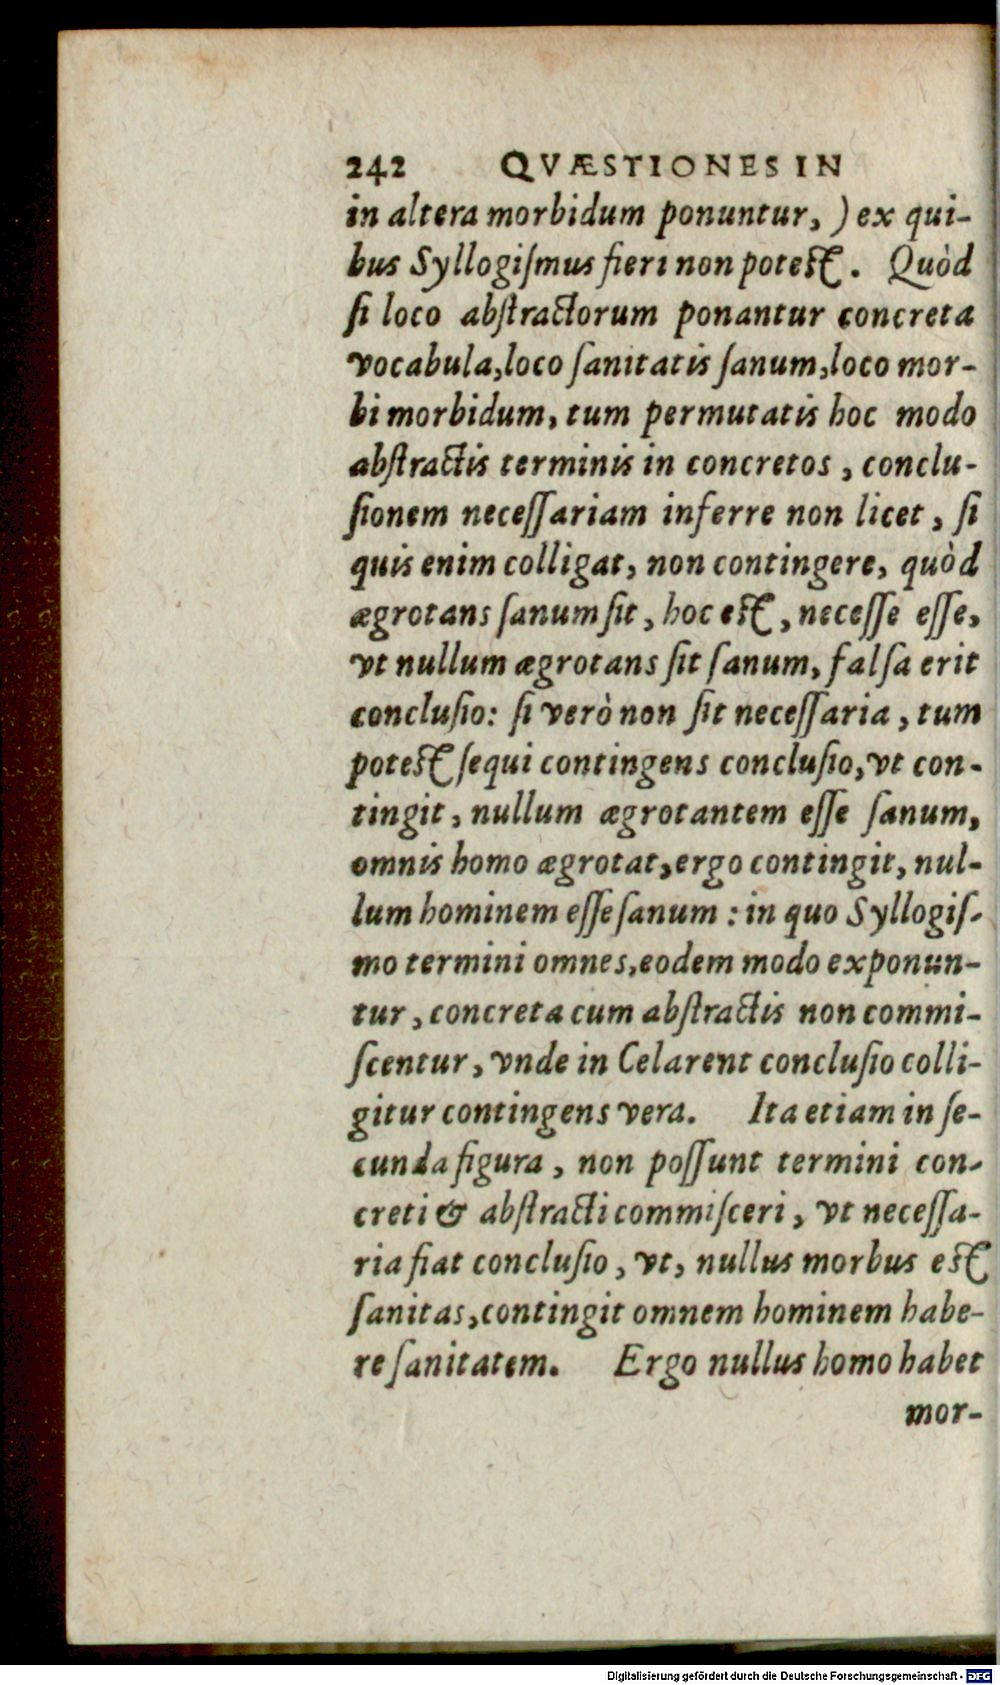 242 QVÆSTIONES IN
in altera morbidum ponuntur, ) ex qui-
bus Syllogiſmus fieri non poteſt. Quòd
ſi loco abſtractorum ponantur concreta
vocabula, loco ſanitatis ſanum, loco mor-
bi morbidum, tum permutatis hoc modo
abſtractis terminis in concretos, conclu-
ſionem neceſſariam inferre non licet, ſi
quis enim colligat, non contingere, quòd
ægrotans ſanum ſit, hoc eſt, neceſſe eſſe,
vt nullum ægrotans ſit ſanum, falſa erit
concluſio: ſi verò non ſit neceſſaria, tum
poteſt ſequi contingens concluſio, vt con-
tingit, nullum ægrotantem eſſe ſanum,
omnis homo ægrotat, ergo contingit, nul-
lum hominem eſſe ſanum: in quo Syllogiſ-
mo termini omnes, eodem modo exponun-
tur, concreta cum abſtractis non commi-
ſcentur, vnde in Celarent concluſio colli-
gitur contingens vera. Ita etiam in ſe-
cunda figura, non poſſunt termini con-
creti & abſtracti commiſceri, vt neceſſa-
ria fiat concluſio, vt, nullus morbus eſt
ſanitas, contingit omnem hominem habe-
re ſanitatem. Ergo nullus homo habet
mor-
Digitalisierung gefördert durch die Deutsche Forschungsgemeinschaft - DFG